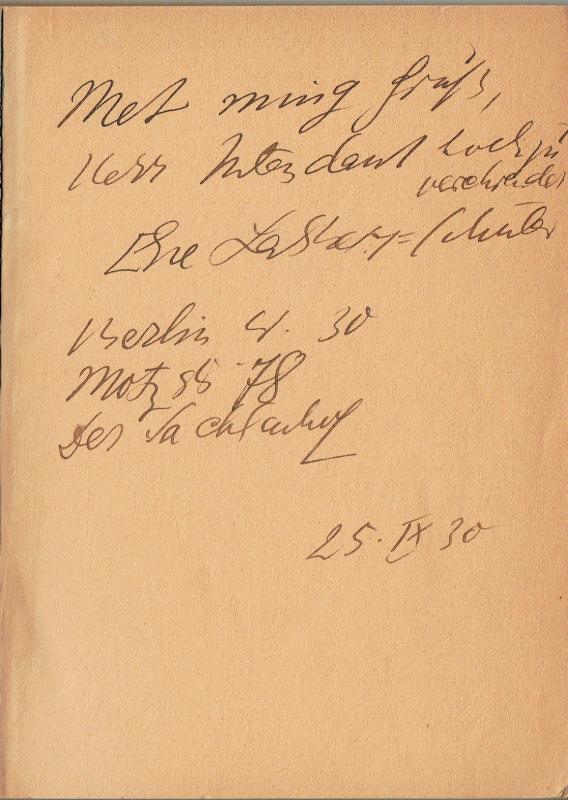 Met ming Grüß,
Herr Intendant hochzu
verehrender
Else Lasker=Schüler
Berlin W. 30
Motzstr 78
Der Sachsenhof
25. IX 30